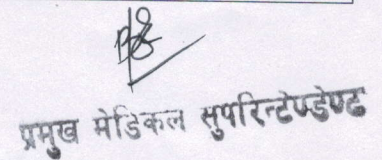 प्रमुख मेडिकल सुपरिन्टेण्डेण्ट